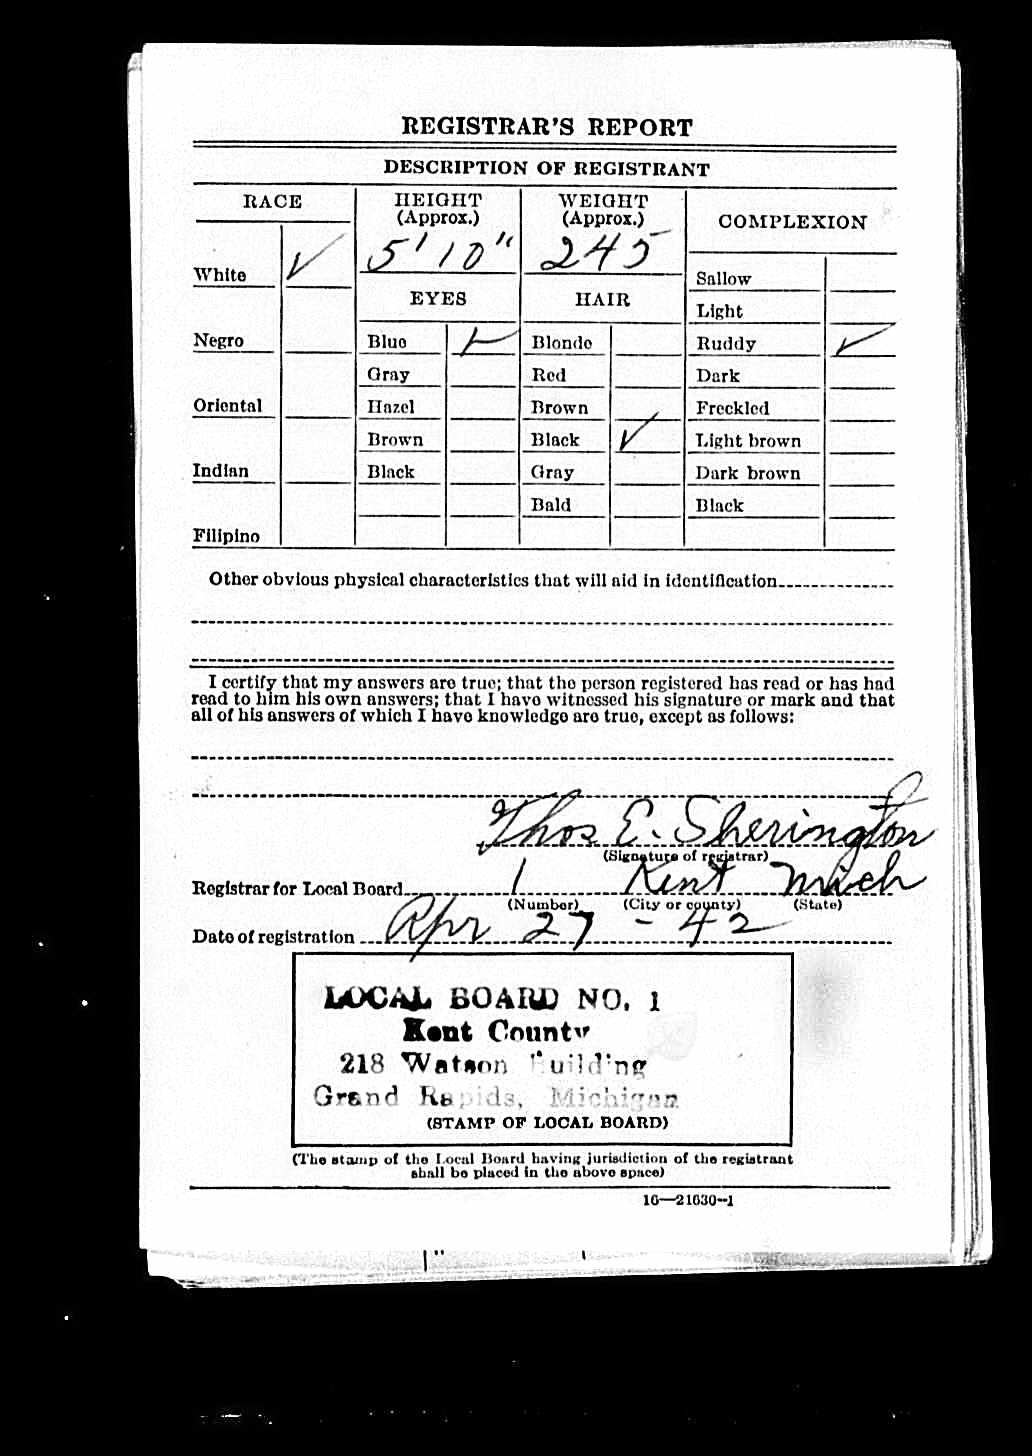 REGISTRAR'S REPORT
DESCRIPTION OF REGISTRANT
RACE
HEIGHT
(Approx.)
5' 10"
WEIGHT
(Approx.)
245
COMPLEXION
White ✓
EYES
HAIR
Sallow
Light
Negro
Blue ✓
Blonde
Ruddy ✓
Gray
Red
Dark
Oriental
Hazel
Brown
Freckled
Brown
Black ✓
Light brown
Indian
Black
Gray
Dark brown
Bald
Black
Filipino
Other obvious physical characteristics that will aid in identification
I certify that my answers are true; that the person registered has read or has had
read to him his own answers; that I have witnessed his signature or mark and that
all of his answers of which I have knowledge are true, except as follows:
Thos E. Sherington
(Signature of registrar)
Registrar for Local Board 1 Kent Mich
(Number) (City or county) (State)
Date of registration Apr 27 - 42
LOCAL BOARD NO. 1
Kent County
218 Watson Building
Grand Rapids, Michigan
(STAMP OF LOCAL BOARD)
(The stamp of the Local Board having jurisdiction of the registrant
shall be placed in the above space)
16—21630-1